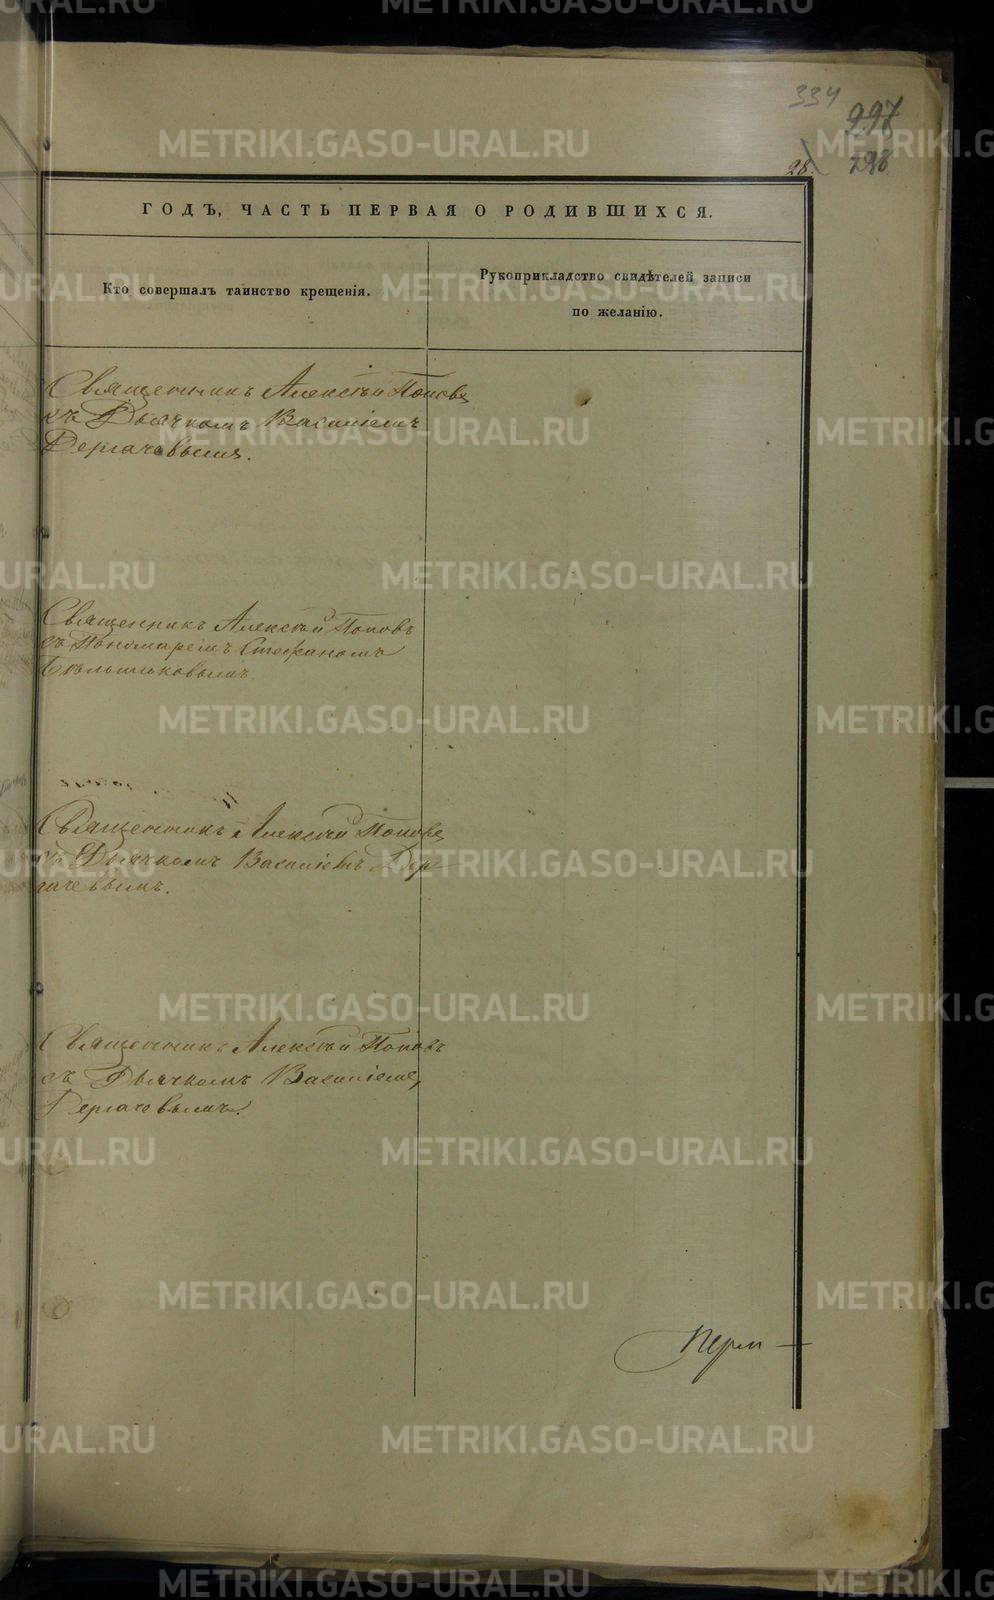 334
297
28.
298
ГОДЪ, ЧАСТЬ ПЕРВАЯ О РОДИВШИХСЯ.
Кто совершалъ таинство крещенія.
Рукоприкладство свидѣтелей записи
по желанію.
Священникъ Алексѣй Поповъ
съ Дьячкомъ Василіемъ
Дергачовымъ.
Священникъ Алексѣй Поповъ
съ Пономаремъ Стефаномъ
Бѣльтиковымъ
Священникъ Алексѣй Поповъ
съ Дьячкомъ Василіемъ Дер
гачевымъ.
Священникъ Алексѣй Поповъ
съ Дьячкомъ Василіемъ
Дергачовымъ.
Перм
METRIKI.GASO-URAL.RU